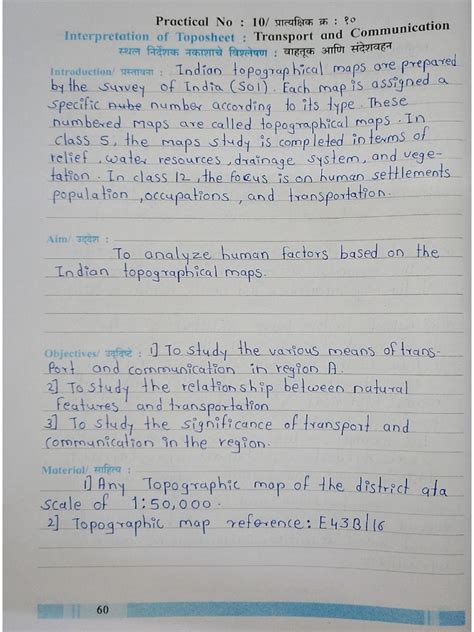 Practical No : 10/ प्रात्यक्षिक क्र : १०
Interpretation of Toposheet : Transport and Communication
स्थल निर्देशक नकाशाचे विश्लेषण : वाहतूक आणि संदेशवहन
Introduction/ प्रस्तावना : Indian topographical maps are prepared
by the survey of India (SOI). Each map is assigned a
specific nube number according to its type. These
numbered maps are called topographical maps. In
class 5, the maps study is completed interms of
relief, water resources, drainage system, and vege-
tation. In class 12, the focus is on human settlements
population, occupations, and transportation.
Aim/ उद्देश :
To analyze human factors based on the
Indian topographical maps.
Objectives/ उद्दिष्टे : 1] To study the various means of trans-
port and communication in region A.
2] To study the relationship between natural
features and transportation
3] To study the significance of transport and
communication in the region.
Material/ साहित्य :
1] Any Topographic map of the district ata
scale of 1:50,000.
2] Topographic map reference: E43B/16
60